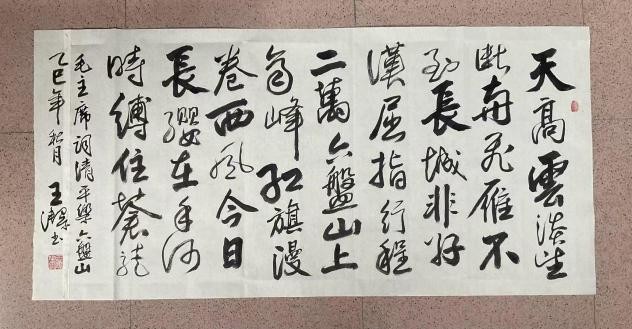 天高雲淡望
斷南飛雁不
到長城非好
漢屈指行程
二萬六盤山上
高峰紅旗漫
卷西風今日
長纓在手何
時縛住蒼龍
毛主席詞清平樂六盤山
乙巳年秋月 王 書